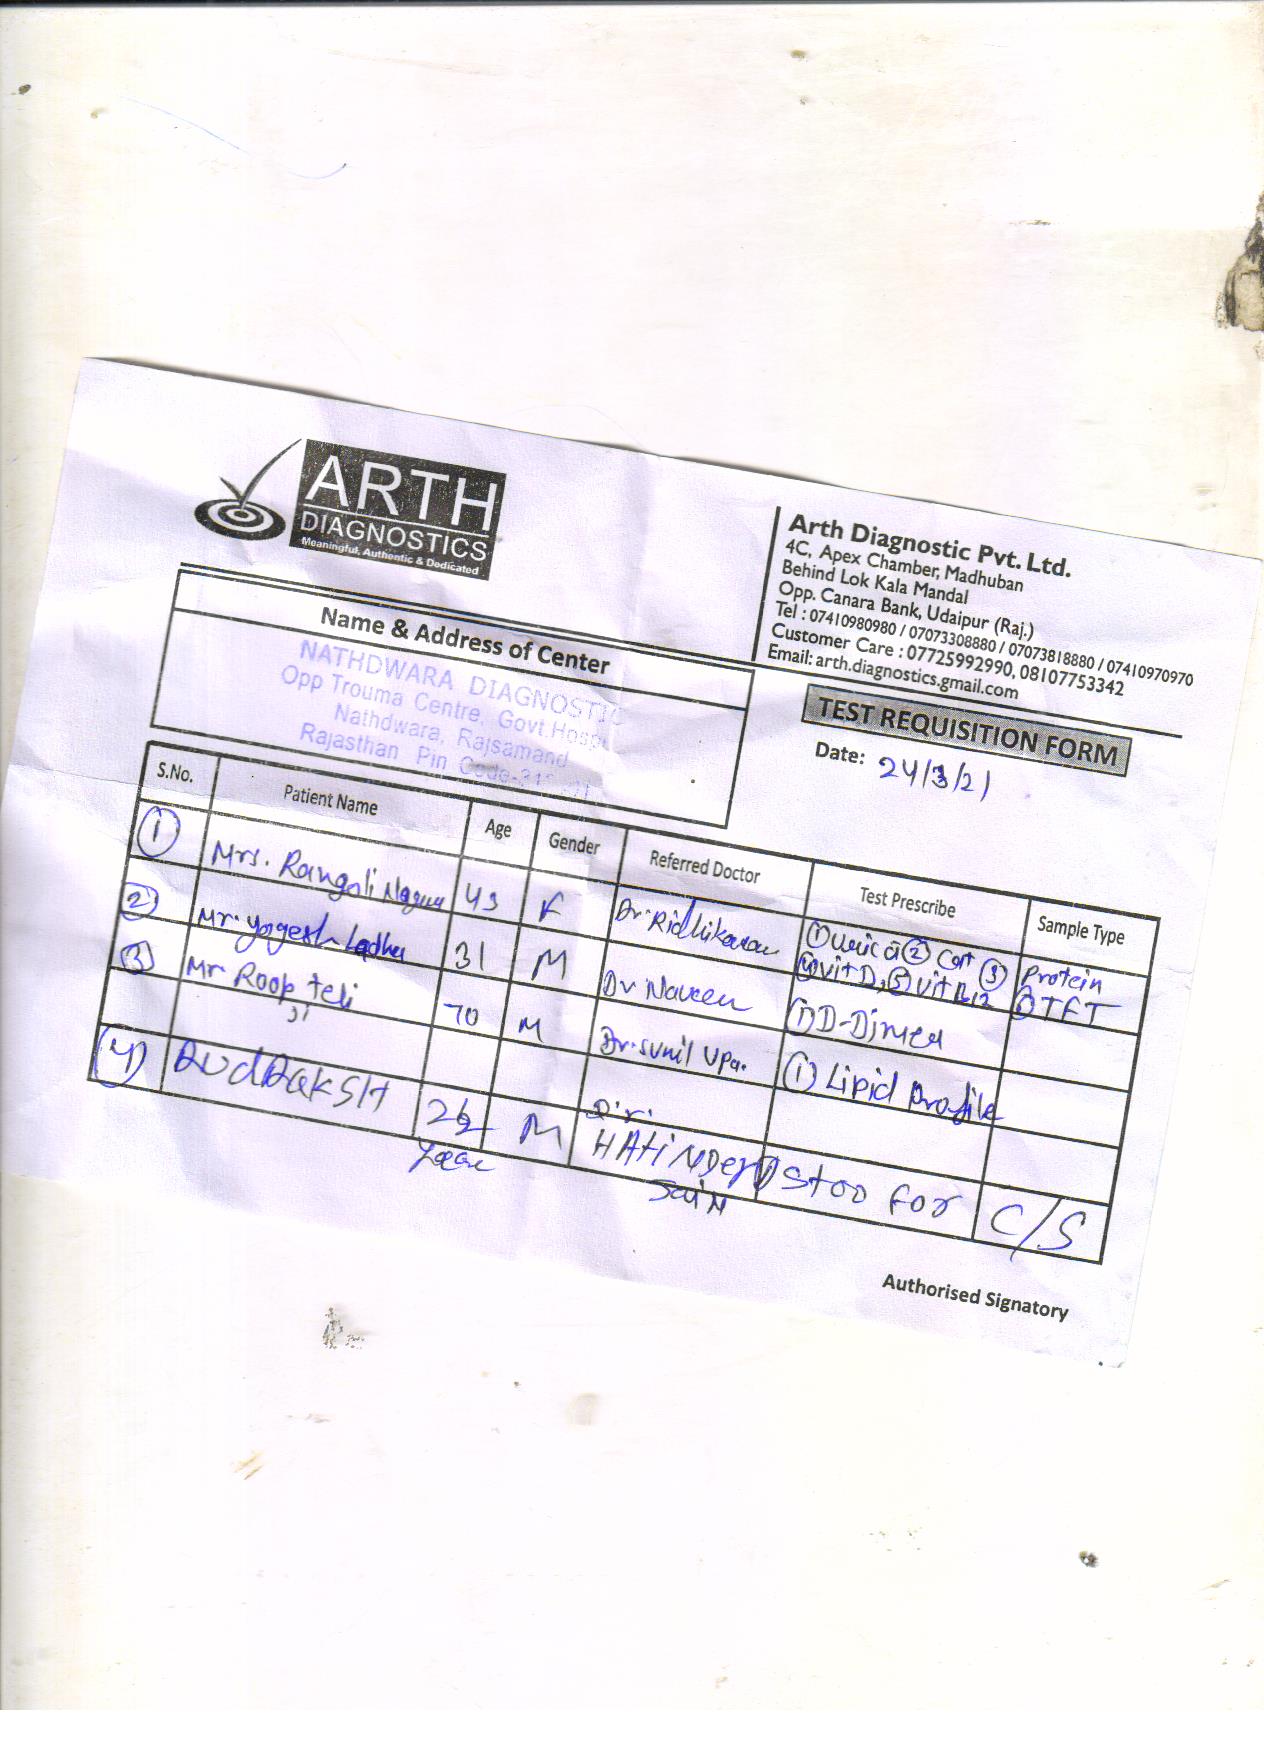 ARTH
DIAGNOSTICS
Meaningful, Authentic & Dedicated
Arth Diagnostic Pvt. Ltd.
4C, Apex Chamber, Madhuban
Behind Lok Kala Mandal
Opp. Canara Bank, Udaipur (Raj.)
Tel : 07410980980 / 07073308880 / 07073818880 / 07410970970
Customer Care : 07725992990, 08107753342
Email: arth.diagnostics.gmail.com
Name & Address of Center
NATHDWARA DIAGNOSTIC
Opp Trouma Centre, Govt.Hosp
Nathdwara, Rajsamand
Rajasthan Pin Code-
TEST REQUISITION FORM
Date: 24/3/21
S.No. Patient Name Age Gender Referred Doctor Test Prescribe Sample Type
1 Mrs. Rangoli 43 F Dr. ① ② ③ Protein
④ Vit D, ⑤ Vit B12 TFT
2 Mr. Yogesh 31 M Dr Naveen ① D-Dimer
3 Mr Roop Teli 70 M Dr. Sunil Upa. ① Lipid Profile
ji
4 RUDRAKSH M Stoo For C/S
Authorised Signatory